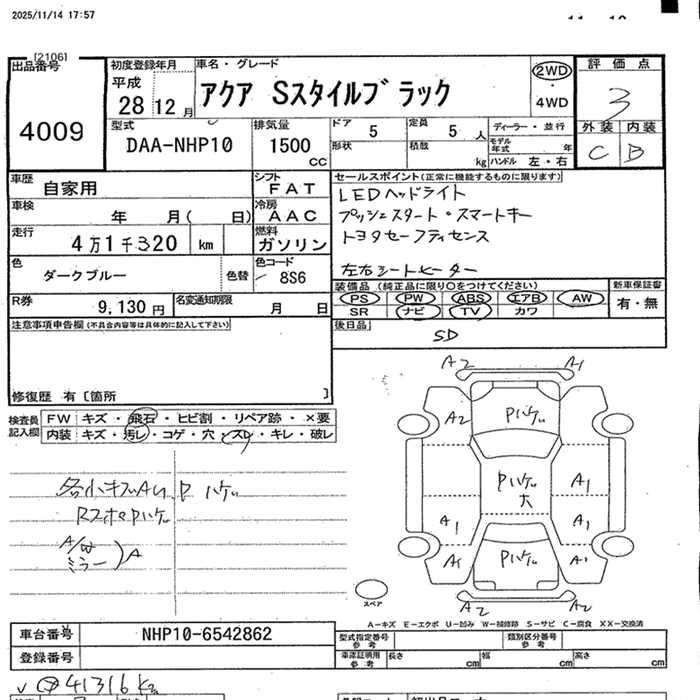 2025/11/14 17:57
[2106]
出品番号
4009
初度登録年月
平成
28 12 月
車名・グレード
アクア Sスタイルブラック
2WD
4WD
評価点
3
外装 内装
C B
型式
DAA-NHP10
排気量
1500 cc
ドア 5
定員 5 人
形状
積載 kg
ディーラー・並行
モデル年式 年
ハンドル 左・右
車歴
自家用
シフト
FAT
車検
年 月( 日)
冷房
AAC
走行
4万1千320 km
燃料
ガソリン
色
ダークブルー
色替
色コード
8S6
R券
9,130 円
名変通知期限
月 日
セールスポイント(正常に機能するものに限ります)
LEDヘッドライト
プッシュスタート・スマートキー
トヨタセーフティセンス
左右シートヒーター
装備品 (純正品に限り○をつけてください)
PS PW ABS エアB AW
SR ナビ TV カワ
新車保証書
有・無
後日品
SD
注意事項申告欄(不具合内容等は具体的に記入して下さい)
修復歴 有〔箇所 〕
検査員記入欄
FW キズ・飛石・ヒビ割・リペア跡・×要
内装 キズ・汚レ・コゲ・穴・スレ・キレ・破レ
各小キズAU.Pハゲ
A/W
ミラー ) A
A2 A1
A2 Pハゲ
Pハゲ
大
A1
A1 A1
A1 Pハゲ A1
A2 A2
スペア
A-キズ E-エクボ U-凹み W-補修跡 S-サビ C-腐食 XX-交換済
車台番号
NHP10-6542862
登録番号
型式指定番号
参考
類別区分番号
参考
車庫証明用
参考
長さ cm
幅 cm
高さ cm
41316 km